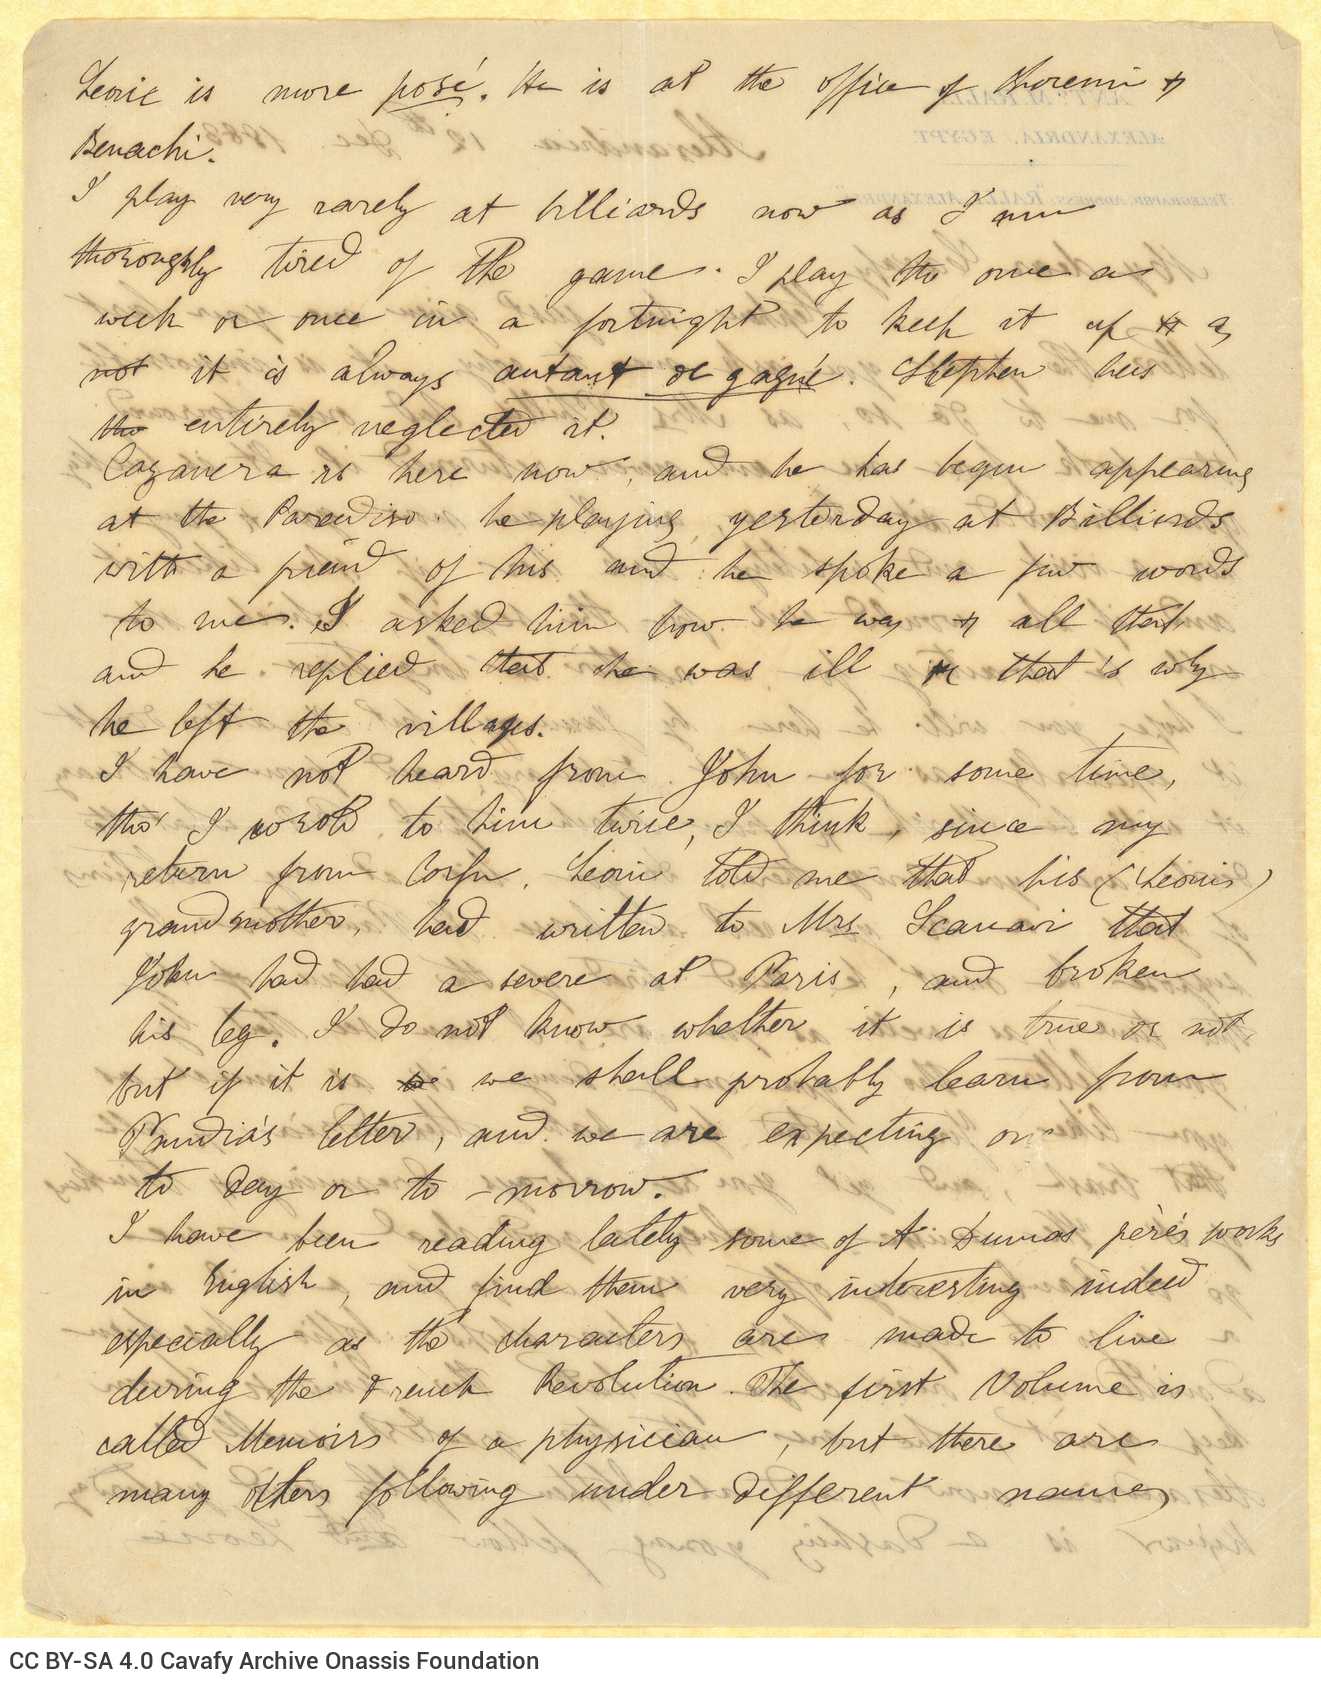 Leonie is more posé. He is at the office of Choremi &
Benachi.
I play very rarely at billiards now as I am
thoroughly tired of the game. I play tho once a
week or once in a fortnight to keep it up & as
not it is always autant de gagné. Stephen has
tho entirely neglected it.
Cazanera is here now, and he has begun appearing
at the Paradiso. he playing, yesterday at Billiards
with a friend of his and he spoke a few words
to me. I asked him how he was & all that
and he replied that he was ill & that's why
he left the villages.
I have not heard from John for some time,
tho' I wrote to him twice, I think, since my
return from Corfu. Leoni told me that his (Leoni's)
grandmother, had written to Mrs Scanavi that
John had had a severe at Paris, and broken
his leg. I do not know whether it is true or not,
but if it is we shall probably learn from
Pandia's letter, and we are expecting one
to day or to-morrow.
I have been reading lately some of A. Dumas père's works
in English, and find them very interesting indeed
especially as the characters are made to live
during the French Revolution. The first Volume is
called Memoirs of a physician, but there are
many others following under different names
CC BY-SA 4.0 Cavafy Archive Onassis Foundation